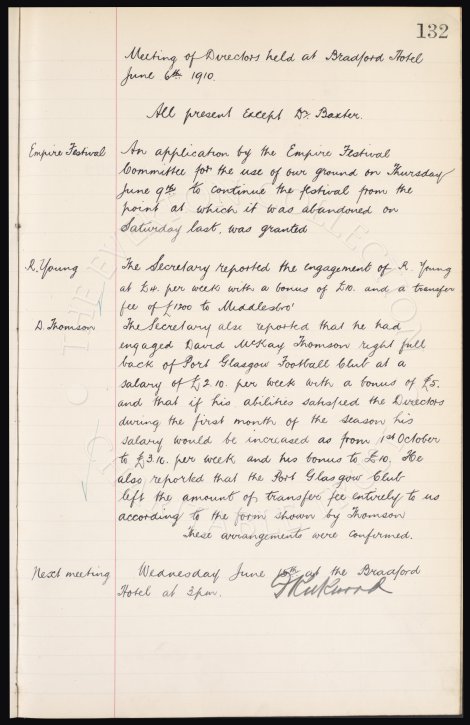 132
Meeting of Directors held at Bradford Hotel
June 6th 1910.
All present except Dr. Baxter.
Empire Festival An application by the Empire Festival
Committee for the use of our ground on Thursday
June 9th to continue the festival from the
point at which it was abandoned on
Saturday last, was granted
R. Young The Secretary reported the engagement of R. Young
at £4. per week with a bonus of £10. and a transfer
fee of £1200 to Middlesbro'
D. Thomson The Secretary also reported that he had
engaged David McKay Thomson right full
back of Port Glasgow Football Club at a
salary of £2.10. per week with a bonus of £5.
and that if his abilities satisfied the Directors
during the first month of the season his
salary would be increased as from 1st October
to £3.10. per week and his bonus to £10. He
also reported that the Port Glasgow Club
left the amount of transfer fee entirely to us
according to the form shown by Thomson
These arrangements were confirmed.
Next meeting Wednesday June 15th at the Bradford
Hotel at 3 pm. Kirkwood